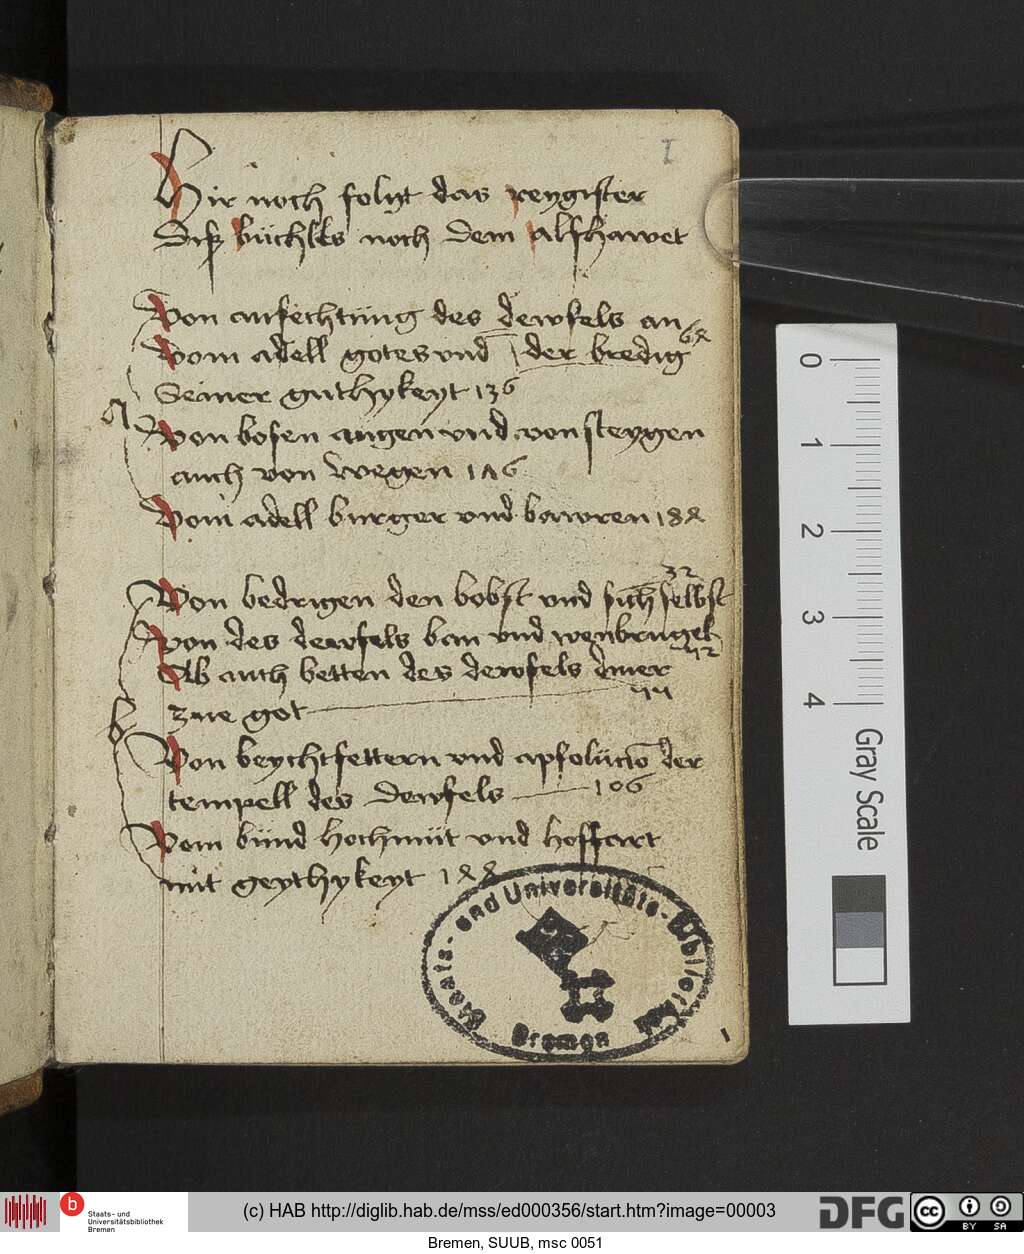 I
Hir noch folgt das reygister
Diß büchlas noch dem alfhawet
Von anfechtüng des dewfels an
der bredig 62
Vom adell gotes vnd
Seiner guthykeyt 136
A
Von bosen augen vnd von steygen
auch von wegen 1A6
Vom adell burger vnd bawren 182
Von bedrigen den bobst vnd sich selbst 32
Von des dewfels ban vnd
Ab auch betten des dewfels diner
zue got
b
Von beychtfettern vnd apsolucio der
tempell des dewfels 106
Vom bünd hochmüt vnd hoffart
mit geythykeyt 1
Staats- und Universitäts-Bibliothek
Bremen
0
1
2
3
4
Gray Scale
b
Staats- und
Universitätsbibliothek
Bremen
(c) HAB http://diglib.hab.de/mss/ed000356/start.htm?image=00003
DFG
cc
BY SA
Bremen, SUUB, msc 0051